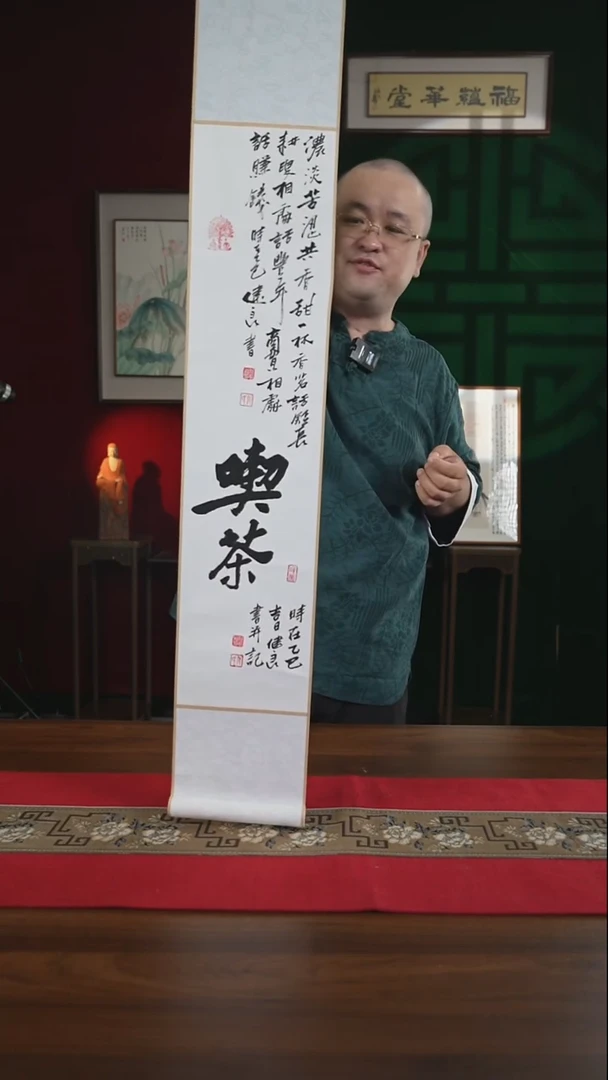 福蘊華堂
濃淡苦澀共香甜一杯香茗話短長
耕 相 話豐年商賈相聚
話賺錢時乙巳健良書
喫茶
時在乙巳
吉日健良
書并記